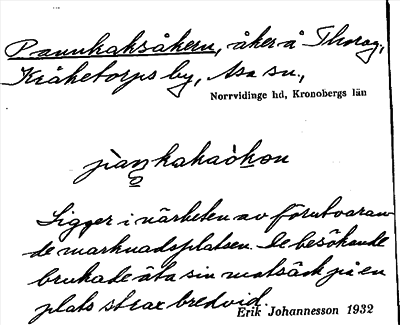 Pannkaksåkern, åker å Thorag,
Kråketorps by, Asa sn,
Norrvidinge hd, Kronobergs län
Ligger i närheten av förutvaran-
de marknadsplatsen. De besökande
brukade äta sin matsäck på en
plats strax bredvid.
Erik Johannesson 1932